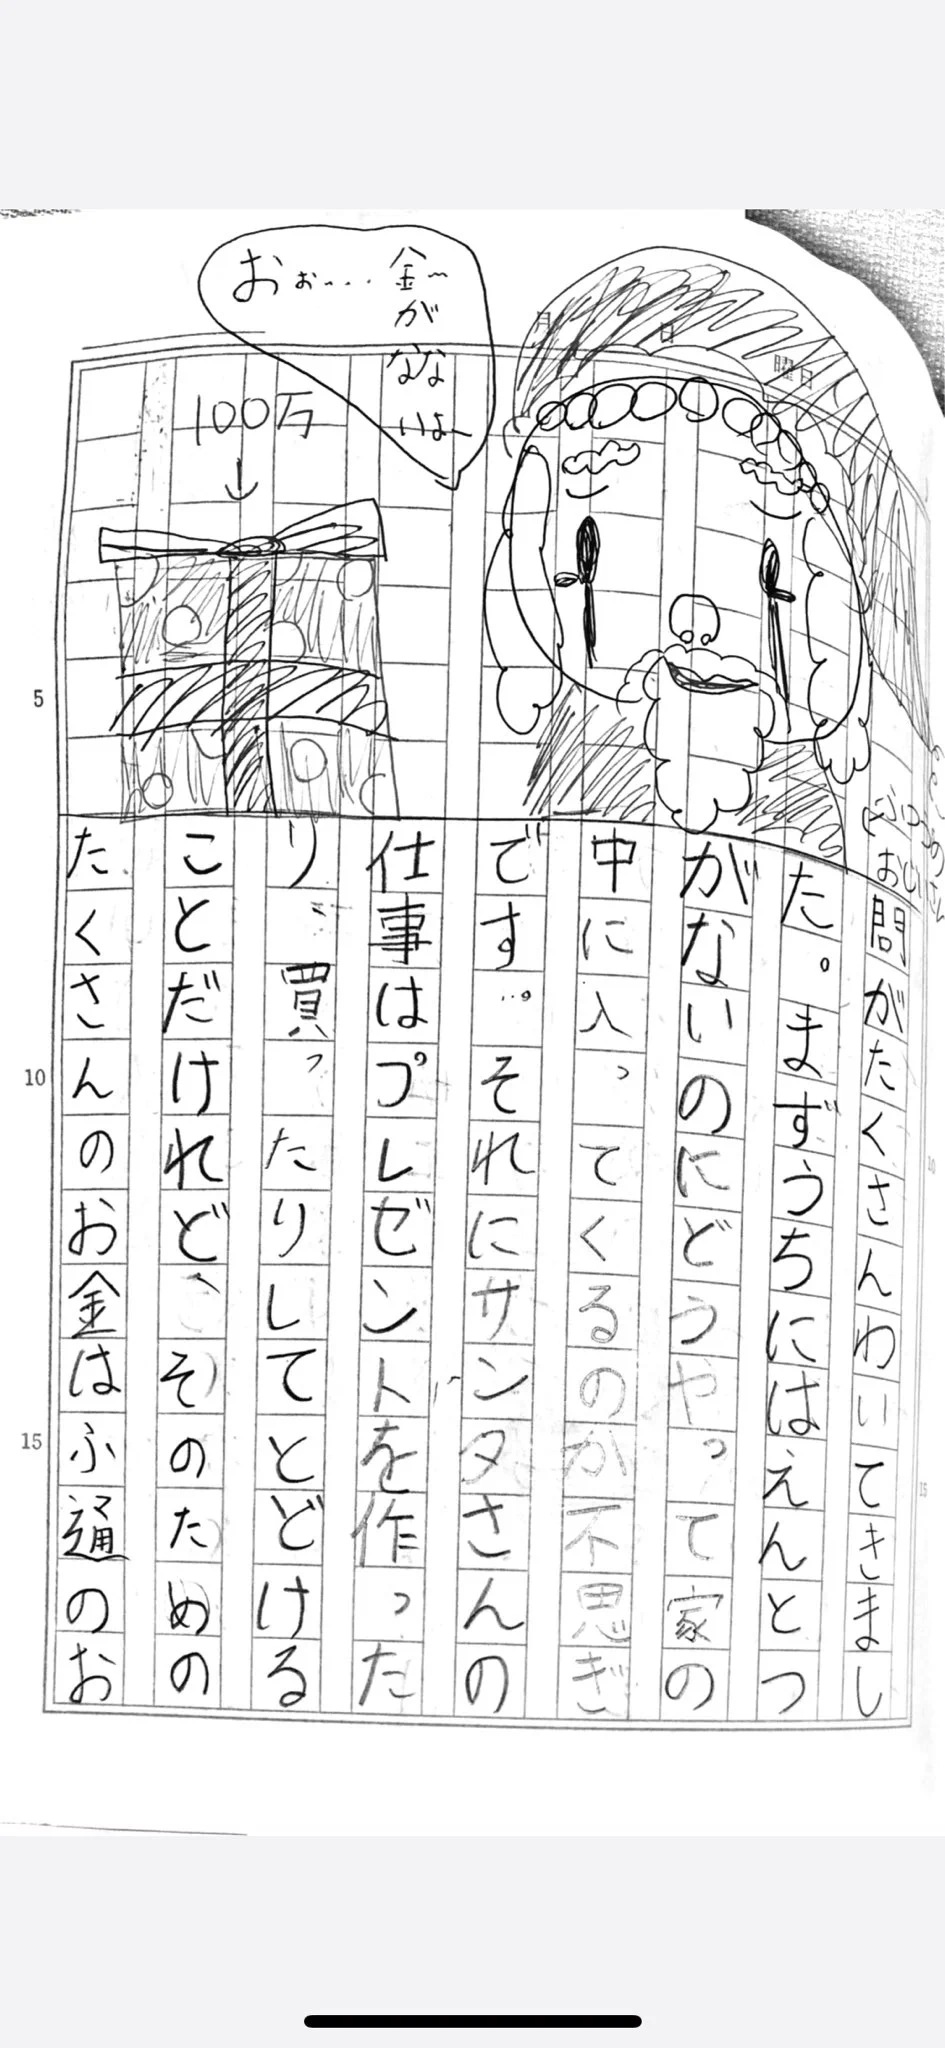 おぉ…金〜
が
なな
いよ
100万
月
日
曜日
問がたくさんわいてきまし
た。まずうちにはえんとつ
がないのにどうやって家の
中に入ってくるのか不思ぎ
です。それにサンタさんの
仕事はプレゼントを作った
り、買ったりしてとどける
ことだけれど、そのための
たくさんのお金はふ通のお
5
10
15
10
15